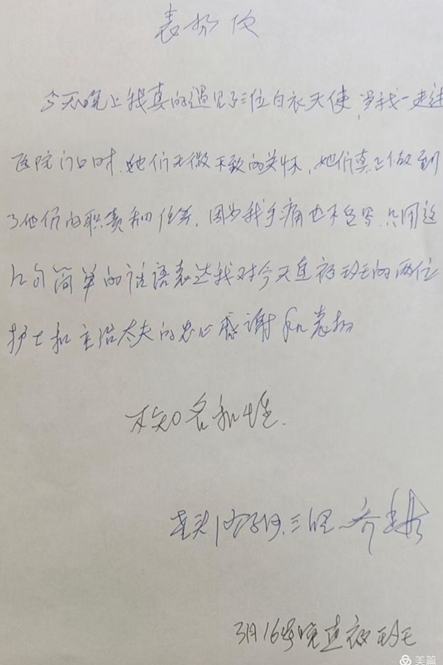 表扬信
今天晚上我真的遇见了三位白衣天使,当我一走进
医院门口时,她们无微不致的关怀,她们真正做到
了他们的职责和任务,因为我手痛也不会写,只用这
几句简单的话语表达我对今天值夜班的两位
护士和主治大夫的忠心感谢和表扬
不知名和姓.
三
3月16号晚值夜班
美篇